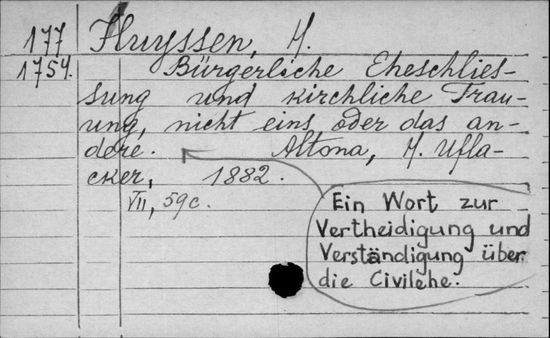 177 Huyssen, H.
1754. Bürgerliche Eheschlies-
sung und kirchliche Trau-
ung, nicht eins oder das an-
dere. Altona, H. Ufla-
cker, 1882.
VII, 59c.
Ein Wort zur
Vertheidigung und
Verständigung über
die Civilehe.